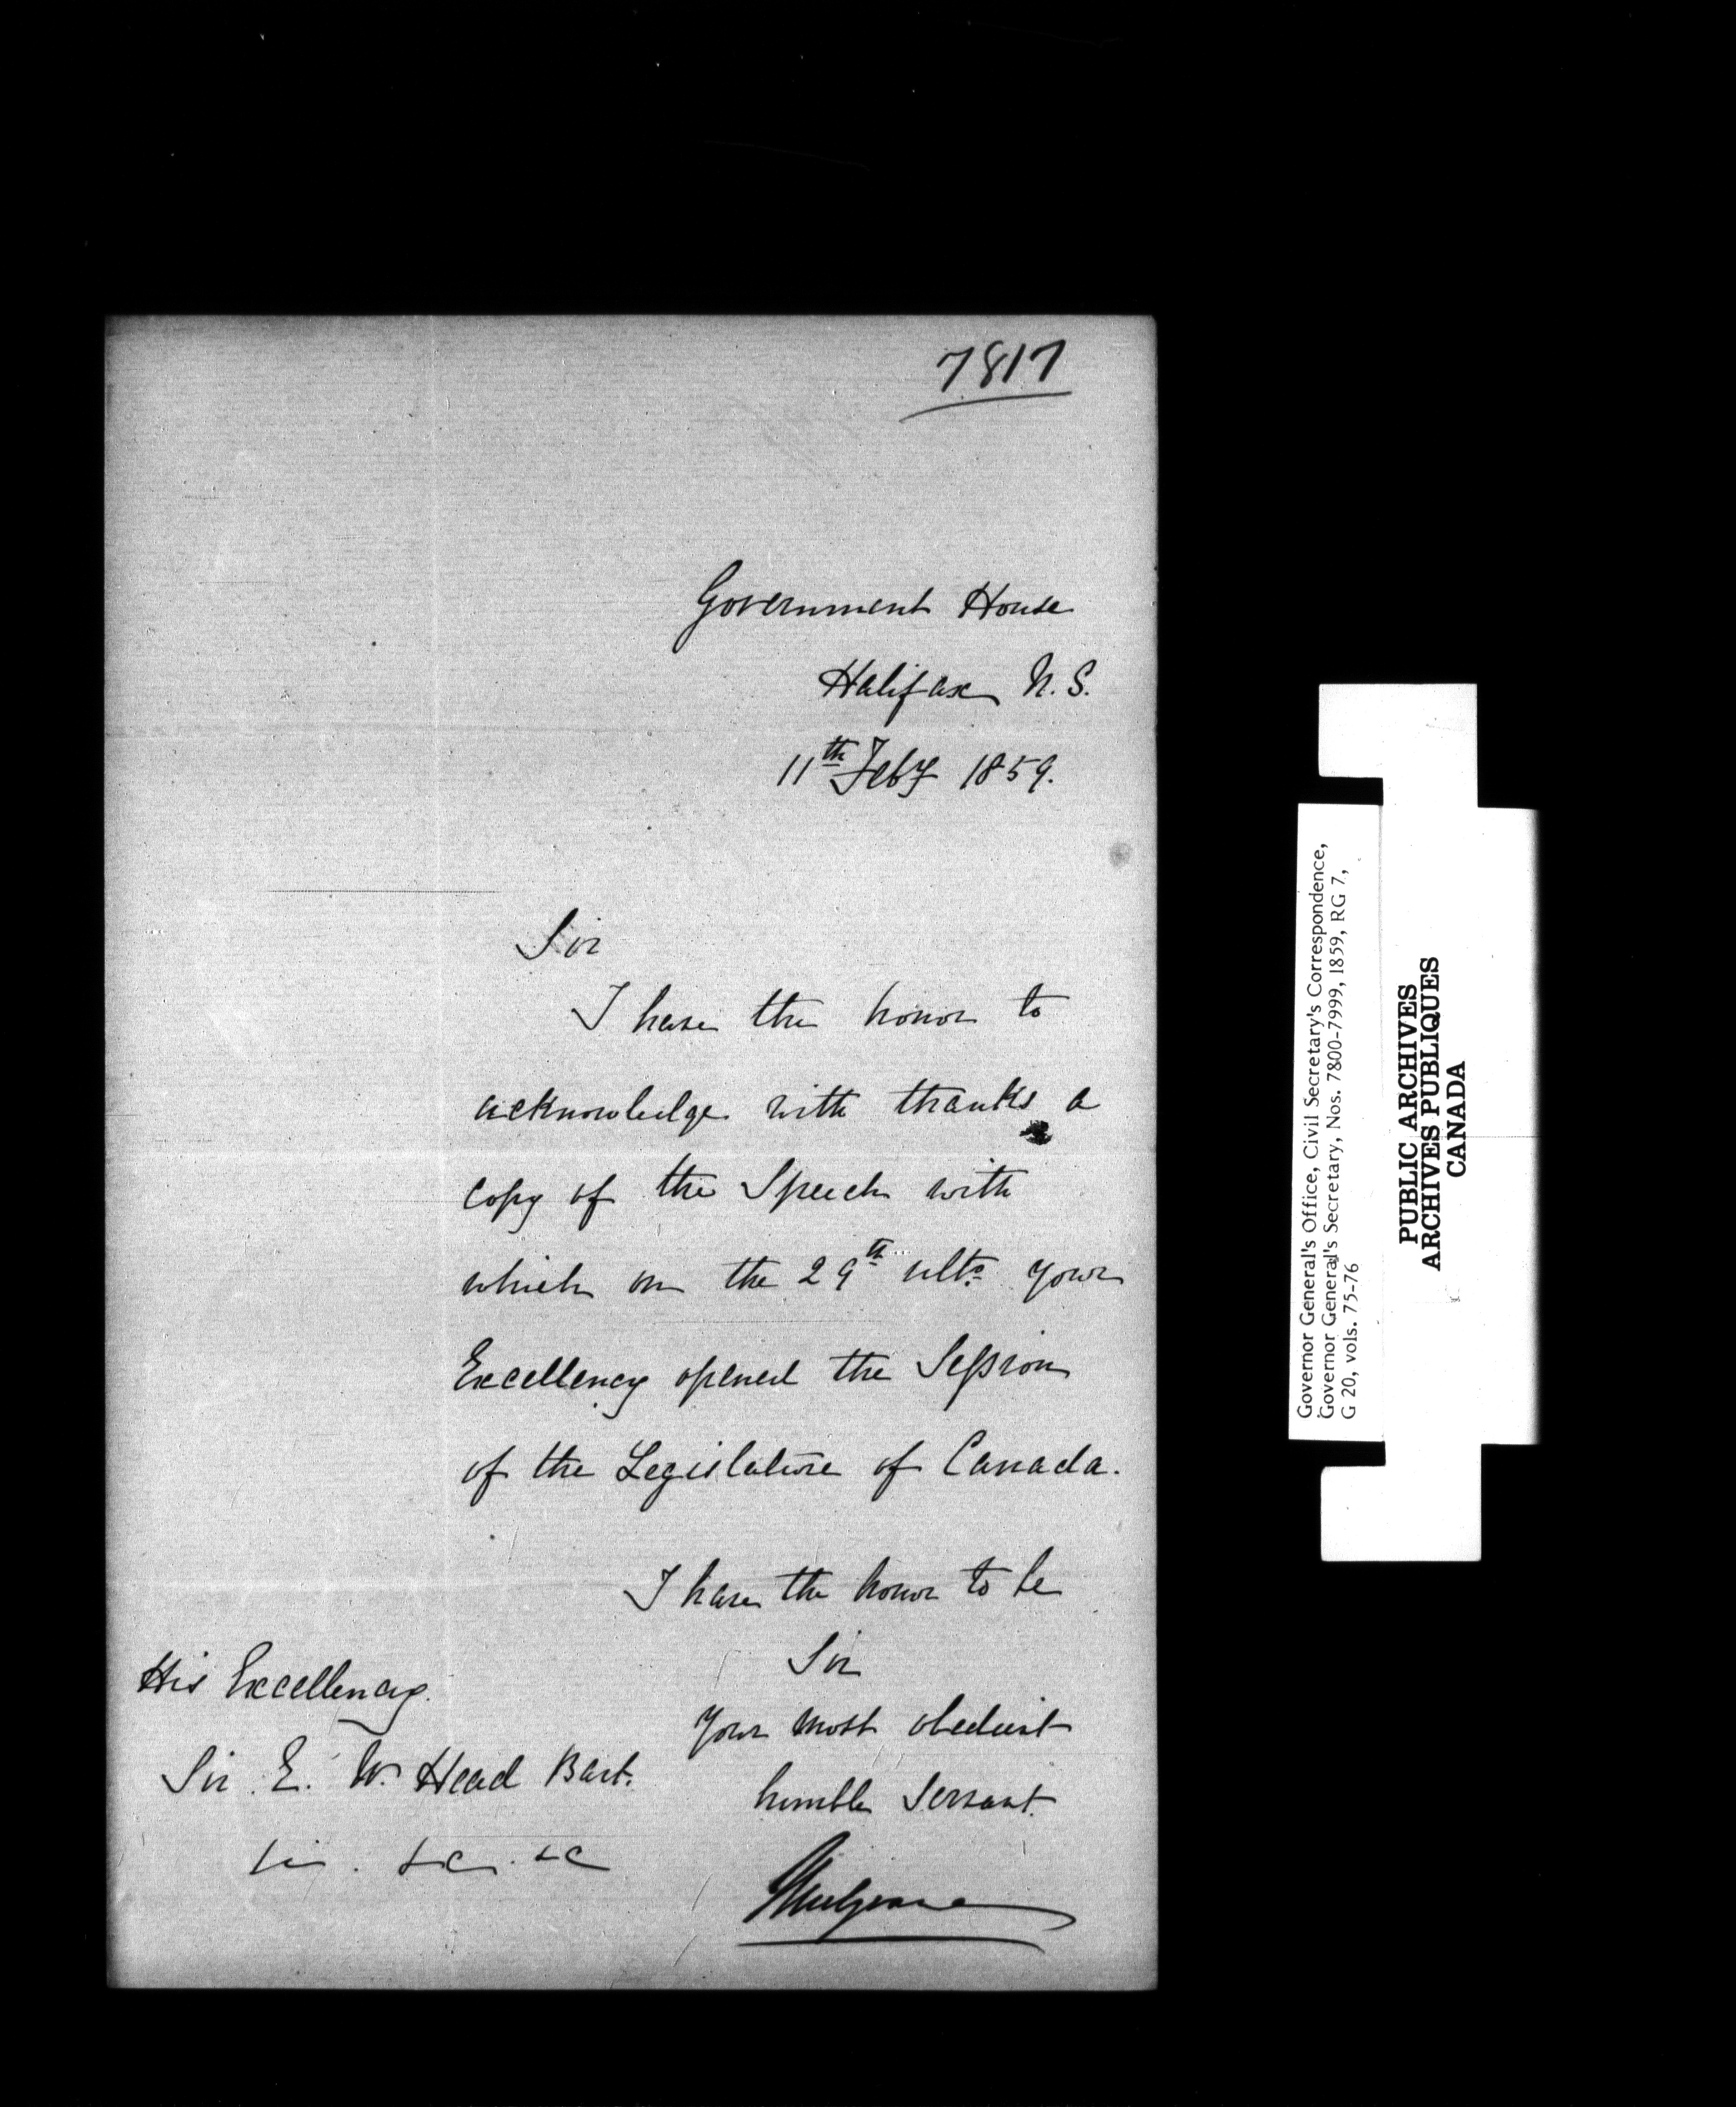 7817
Government House
Halifax N. S.
11th Feby 1859.
Sir
I have the honor to
acknowledge with thanks a
copy of the Speech with
which on the 29th ulto. your
Excellency opened the Session
of the Legislature of Canada.
I have the honor to be
Sir
your most obedient
humble Servant.
Mulgrave
His Excellency.
Sir E. W. Head Bart.
&c. &c. &c
Governor General's Office, Civil Secretary's Correspondence,
Governor General's Secretary, Nos. 7800-7999, 1859, RG 7,
G 20, vols. 75-76
PUBLIC ARCHIVES
ARCHIVES PUBLIQUES
CANADA